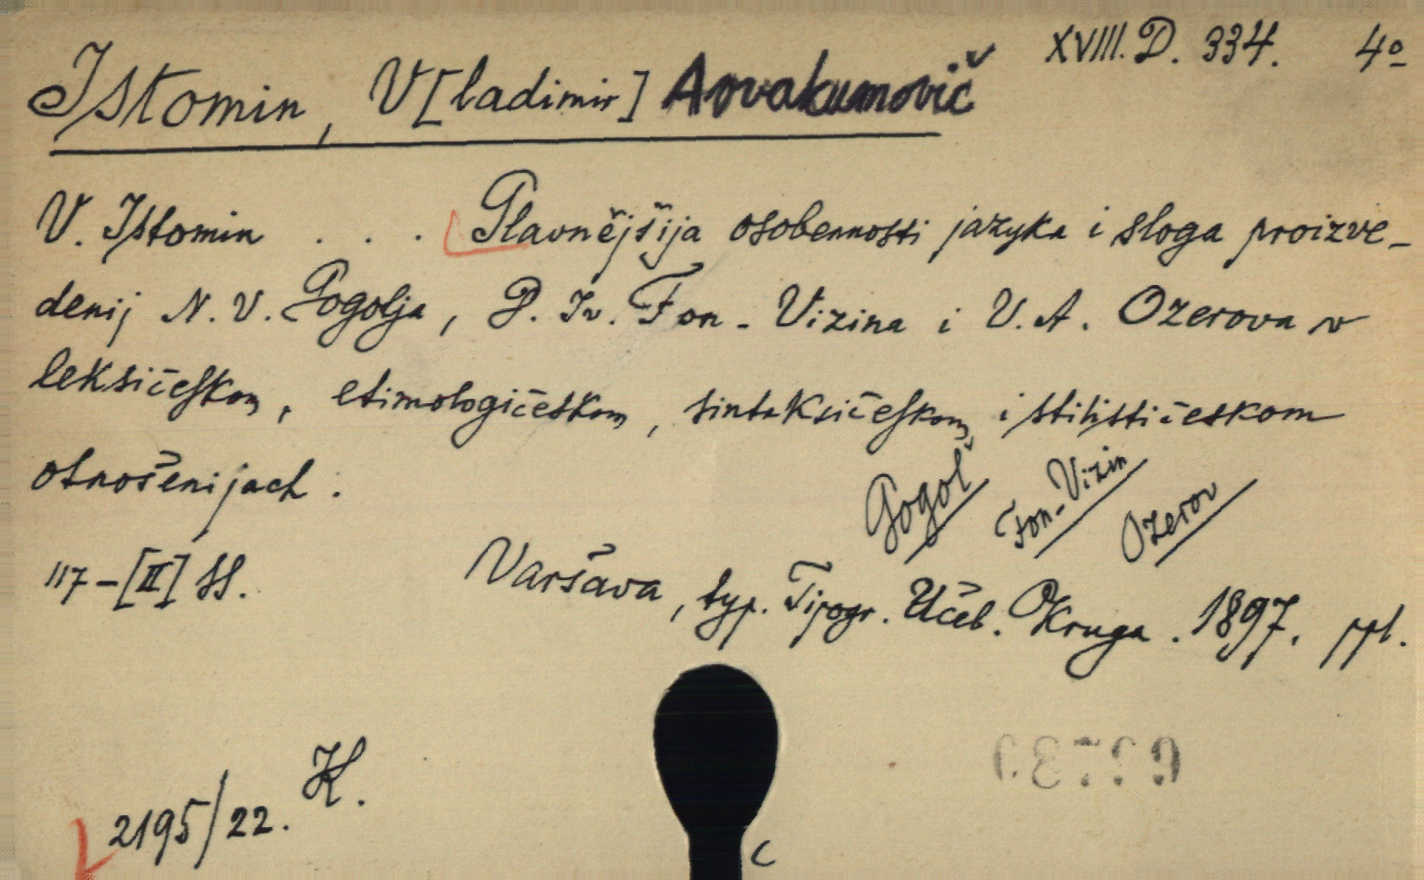 XVIII. D. 334. 4º
Istomin, V[ladimir] Avvakumovič
V. Istomin . . . Glavnějšija osobennosti jazyka i sloga proizve-
denij N. V. Gogolja, D. Iv. Fon-Vizina i V. A. Ozerova v
leksičeskom, etimologičeskom, sintaksičeskom i stilističeskom
otnošenijach.
Gogol'
Fon-Vizin
Ozerov
117-[II] SS. Varšava, typ. Tipogr. Učeb. Okruga. 1897. ppl.
2195/22. K.
C